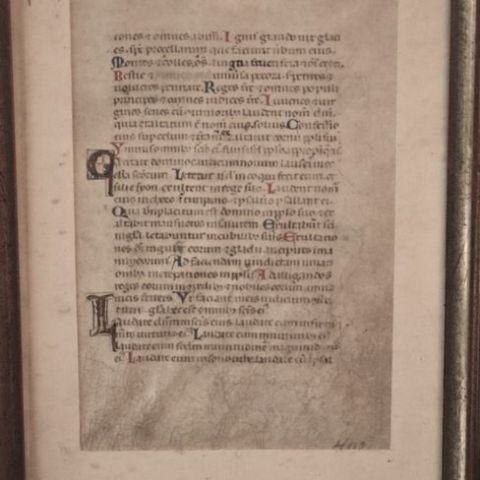 cones & omnes abissi. Ignis grando nix glaci
es. sps procellarum que faciunt ubum eius.
Montes & colles os. lingna fructifera & oes cedri.
Bestie & uniusa pecora. serpentes &
uolucres pennate. Reges tre & omnes populi
principes & omnes iudices tre. Iuuenes & uir
gines senes cu iunioribus laudent nomen dni.
quia exaltatum e nom eius solius. Confessio
eius sup celum & tram & cornu ppli sui
Ymnus omnibus scis ei. filiis isrl pplo
Cantate domino canticum nouum laus ei in ec
clesia scorum. Letetur isrl in eo qui fecit eum &
filie syon exultent in rege suo. Laudent nom
eius in choro & tympano & psalterio psallant ei.
Quia bnplacitum est domino in pplo suo & ex
altabit mansuetos in salutem. Exultabut sci
in gla letabuntur in cubilibus suis. Exultatio
nes di in guture eorum & gladii ancipites in ma
nibus eorum. Ad faciendam uindictam in nati
onibus increpationes in pplis. Ad alligandos
reges eorum in & nobiles eorum in ma
nicis ferreis. Ut faciant in eis iudicium
gla hec est omnibus scis ei
Laudate dnm in scis eius laudate eum in firma
mto uirtutis ei. Laudate eum in uirtutibus ei
Laudate eum secdm multitudine magnitudinis
ei. Laudate eum in sono tube laudate eu i psalt